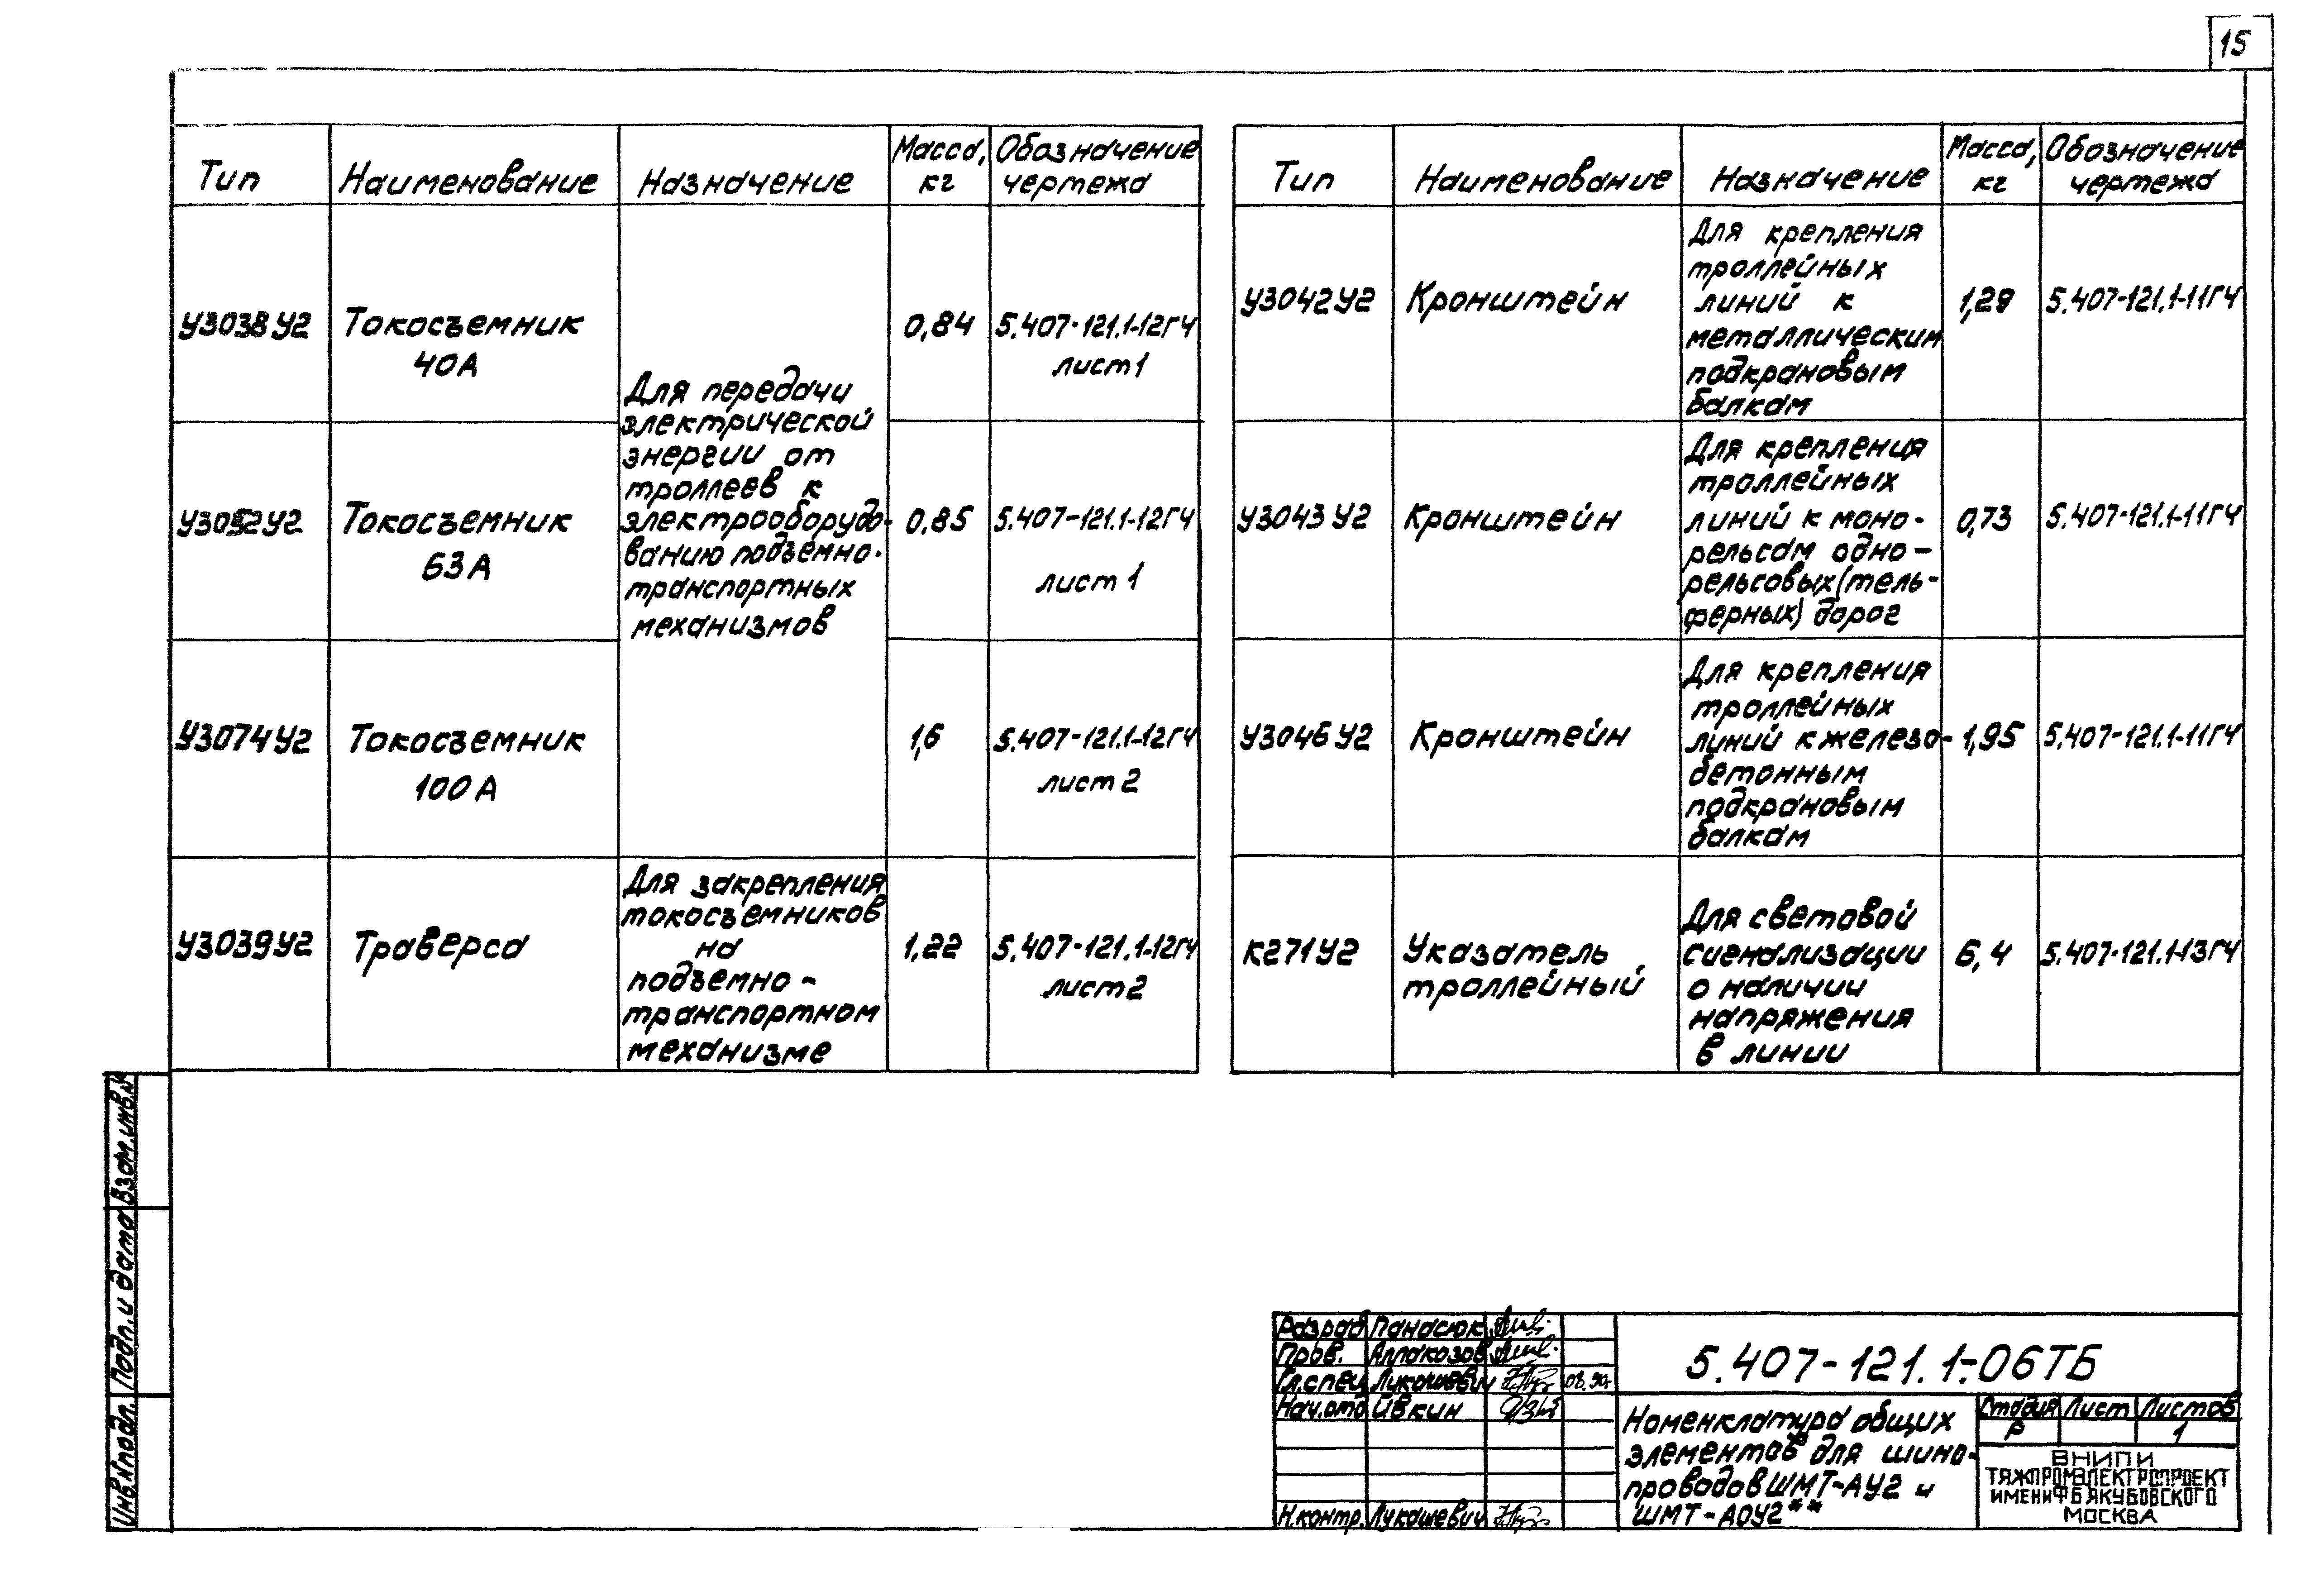 15
Тип Наименование Назначение Масса, кг Обозначение чертежа
У3038У2 Токосъемник 40А 0,84 5.407-121.1-12ГЧ лист 1
Для передачи
электрической
энергии от
троллеев к
электрооборудо-
ванию подъемно-
транспортных
механизмов
У3052У2 Токосъемник 63А 0,85 5.407-121.1-12ГЧ лист 1
У3074У2 Токосъемник 100А 1,6 5.407-121.1-12ГЧ лист 2
У3039У2 Траверса 1,22 5.407-121.1-12ГЧ лист 2
Для закрепления
токосъемников
на
подъемно-
транспортном
механизме
Тип Наименование Назначение Масса, кг Обозначение чертежа
У3042У2 Кронштейн 1,29 5.407-121.1-11ГЧ
Для крепления
троллейных
линий к
металлическим
подкрановым
балкам
У3043У2 Кронштейн 0,73 5.407-121.1-11ГЧ
Для крепления
троллейных
линий к моно-
рельсам одно-
рельсовых (тель-
ферных) дорог
У3046У2 Кронштейн 1,95 5.407-121.1-11ГЧ
Для крепления
троллейных
линий к железо-
бетонным
подкрановым
балкам
К271У2 Указатель троллейный 6,4 5.407-121.1-13ГЧ
Для световой
сигнализации
о наличии
напряжения
в линии
Взам.инв.№
Подп. и дата
Инв.№подл.
Разраб Панасюк
Пров. Аллакозов
Гл.спец Лукашевич 08.90г
Нач.отд Ивкин
Н.контр. Лукашевич
5.407-121.1-06ТБ
Номенклатура общих
элементов для шино-
проводов ШМТ-АУ2 и
ШМТ-АОУ2**
Стадия Лист Листов
Р 1
ВНИПИ
ТЯЖПРОМЭЛЕКТРОПРОЕКТ
ИМЕНИ Ф.Б.ЯКУБОВСКОГО
МОСКВА